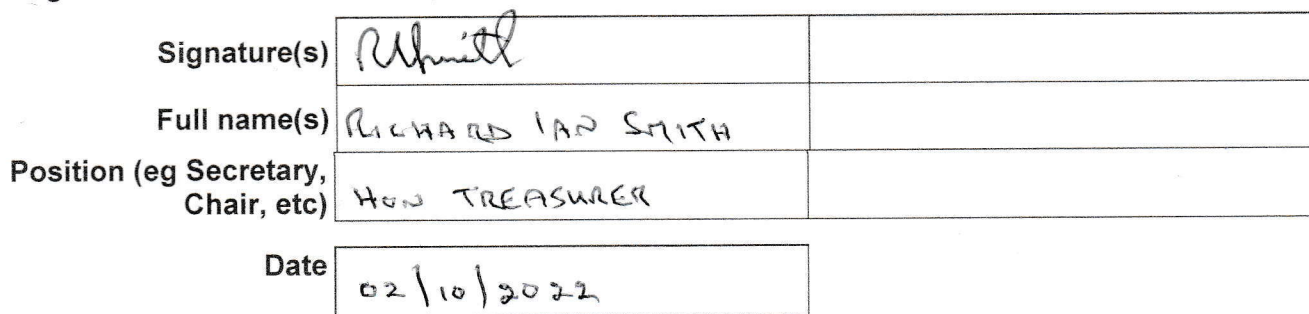 Signature(s) RISmith
Full name(s) RICHARD IAN SMITH
Position (eg Secretary,
Chair, etc) HON TREASURER
Date 02/10/2022